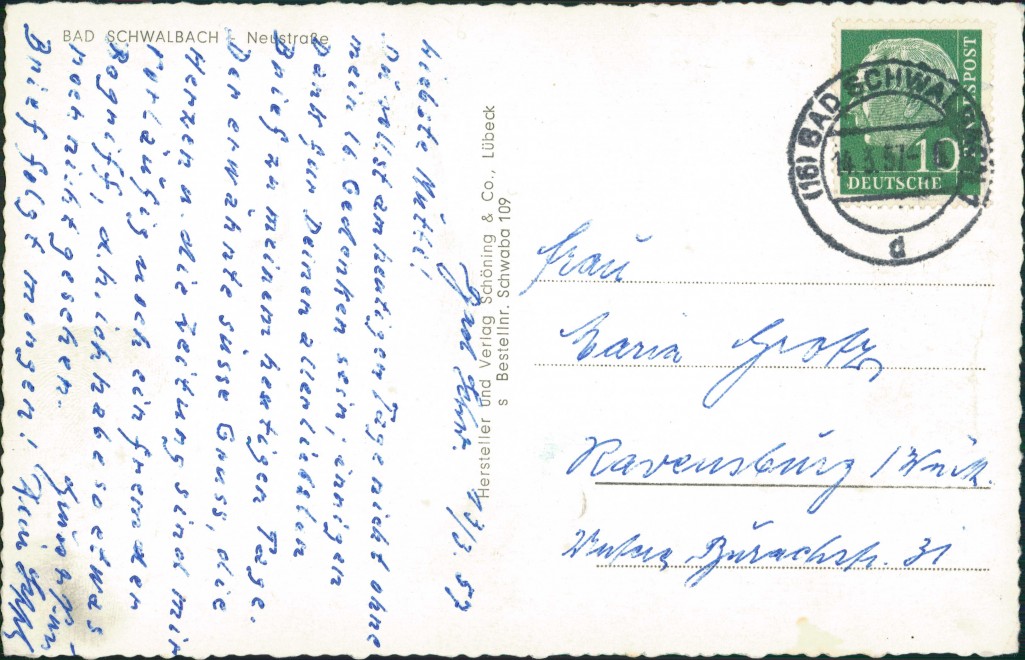 BAD SCHWALBACH Neustraße
Bad Schw. 13/3. 57
Liebste Mutti!
Du sollst am heutigen Tage nicht ohne
mein lb. Gedenken sein; innigen
Dank für Deinen allerliebsten
Brief zu meinem heutigen Tage.
Der erwähnte süsse Gruss, die
Herzen u. die Zeitung sind mir
vorläufig noch ein fremder
Begriff, d.h. ich habe so etwas
noch nicht gesehen.
Brief folgt morgen!
Hersteller und Verlag Schöning & Co., Lübeck
s Bestellnr. Schwaba 109
DEUTSCHE
10
(16) BAD SCHWALBACH
14.3.57
d
Frau
Maria Grotz
Ravensburg / Württ.
Untere Burachstr. 31